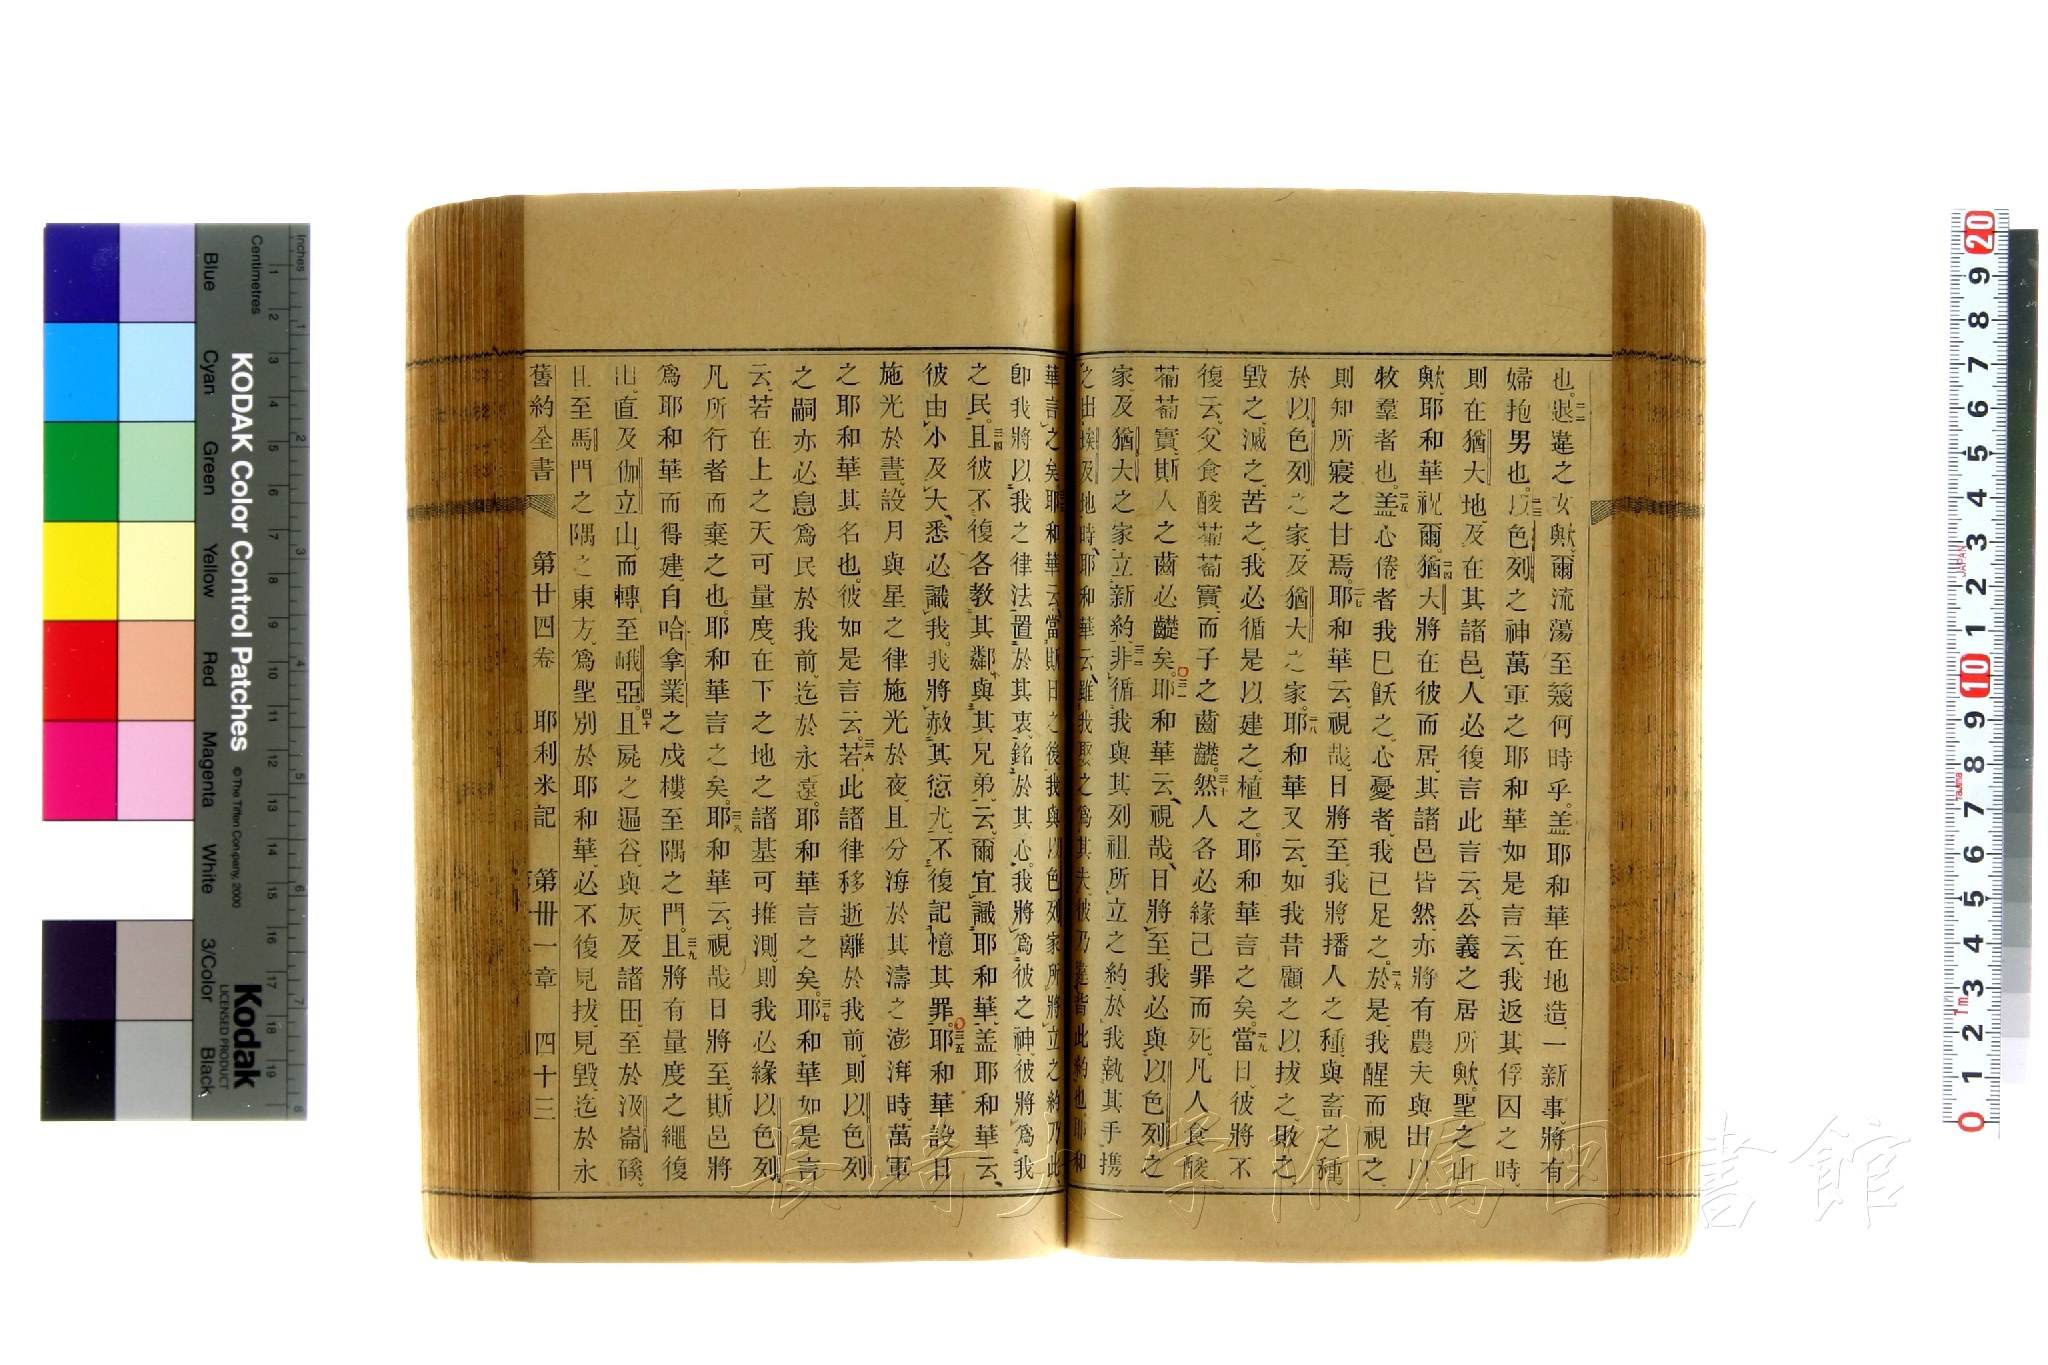 也。退違之女歟、爾流蕩至幾何時乎。蓋耶和華在地造一新事、將有
婦抱男也。以色列之神萬軍之耶和華如是言云、我返其俘囚之時、
則在猶大地、及在其諸邑、人必復言此言云、公義之居所歟。聖之山
歟、耶和華祝爾。猶大將在彼而居、其諸邑皆然、亦將有農夫與出以
牧羣者也。蓋心倦者我已飫之、心憂者、我已足之。於是、我醒而視之、
則知所寢之甘焉。耶和華云、視哉、日將至、我將播人之種、與畜之種、
於以色列之家、及猶大之家。耶和華又云、如我昔顧之以拔之、敗之、
毀之、滅之、苦之、我必循是以建之、植之、耶和華言之矣。當日、彼將不
復云、父食酸葡萄實、而子之齒齼。然人各必緣己罪而死、凡人食酸
葡萄實、斯人之齒必齼矣。耶和華云、視哉、日將至、我必與以色列之
家、及猶大之家、立新約、非循我與其列祖所立之約、於我執其手、攜
之出埃及地時、耶和華云、雖我娶之爲其夫、彼乃違背此約也、耶和
華言之矣。耶和華云、當斯日之後、我與以色列家所將立之約乃此、
卽我將以我之律法置於其衷、銘於其心。我將爲彼之神、彼將爲我
之民。且彼不復各教其鄰、與其兄弟、云、爾宜識耶和華、蓋耶和華云、
彼由小及大、悉必識我。我將赦其愆尤、不復記憶其罪。耶和華設日
施光於晝、設月與星之律施光於夜、且分海於其濤之澎湃時、萬軍
之耶和華其名也。彼如是言云。若此諸律移逝離於我前、則以色列
之嗣亦必息爲民於我前、迄於永遠。耶和華言之矣。耶和華如是言
云、若在上之天可量度、在下之地之諸基可推測、則我必緣以色列
凡所行者而棄之也。耶和華言之矣。耶和華云、視哉日將至、斯邑將
爲耶和華而得建、自哈拿業之戍樓至隅之門。且將有量度之繩復
出、直及伽立山、而轉至峨亞。且屍之遍谷、與灰、及諸田、至於汲崙磎、
且至馬門之隅之東方、爲聖別於耶和華、必不復見拔、見毀、迄於永
舊約全書 第廿四卷 耶利米記 第卅一章 四十三
KODAK Color Control Patches
© The Tiffen Company, 2000
Kodak
LICENSED PRODUCT
Inches
Centimetres
Blue
Cyan
Green
Yellow
Red
Magenta
White
3/Color
Black
長崎大学附属図書館
JAPAN